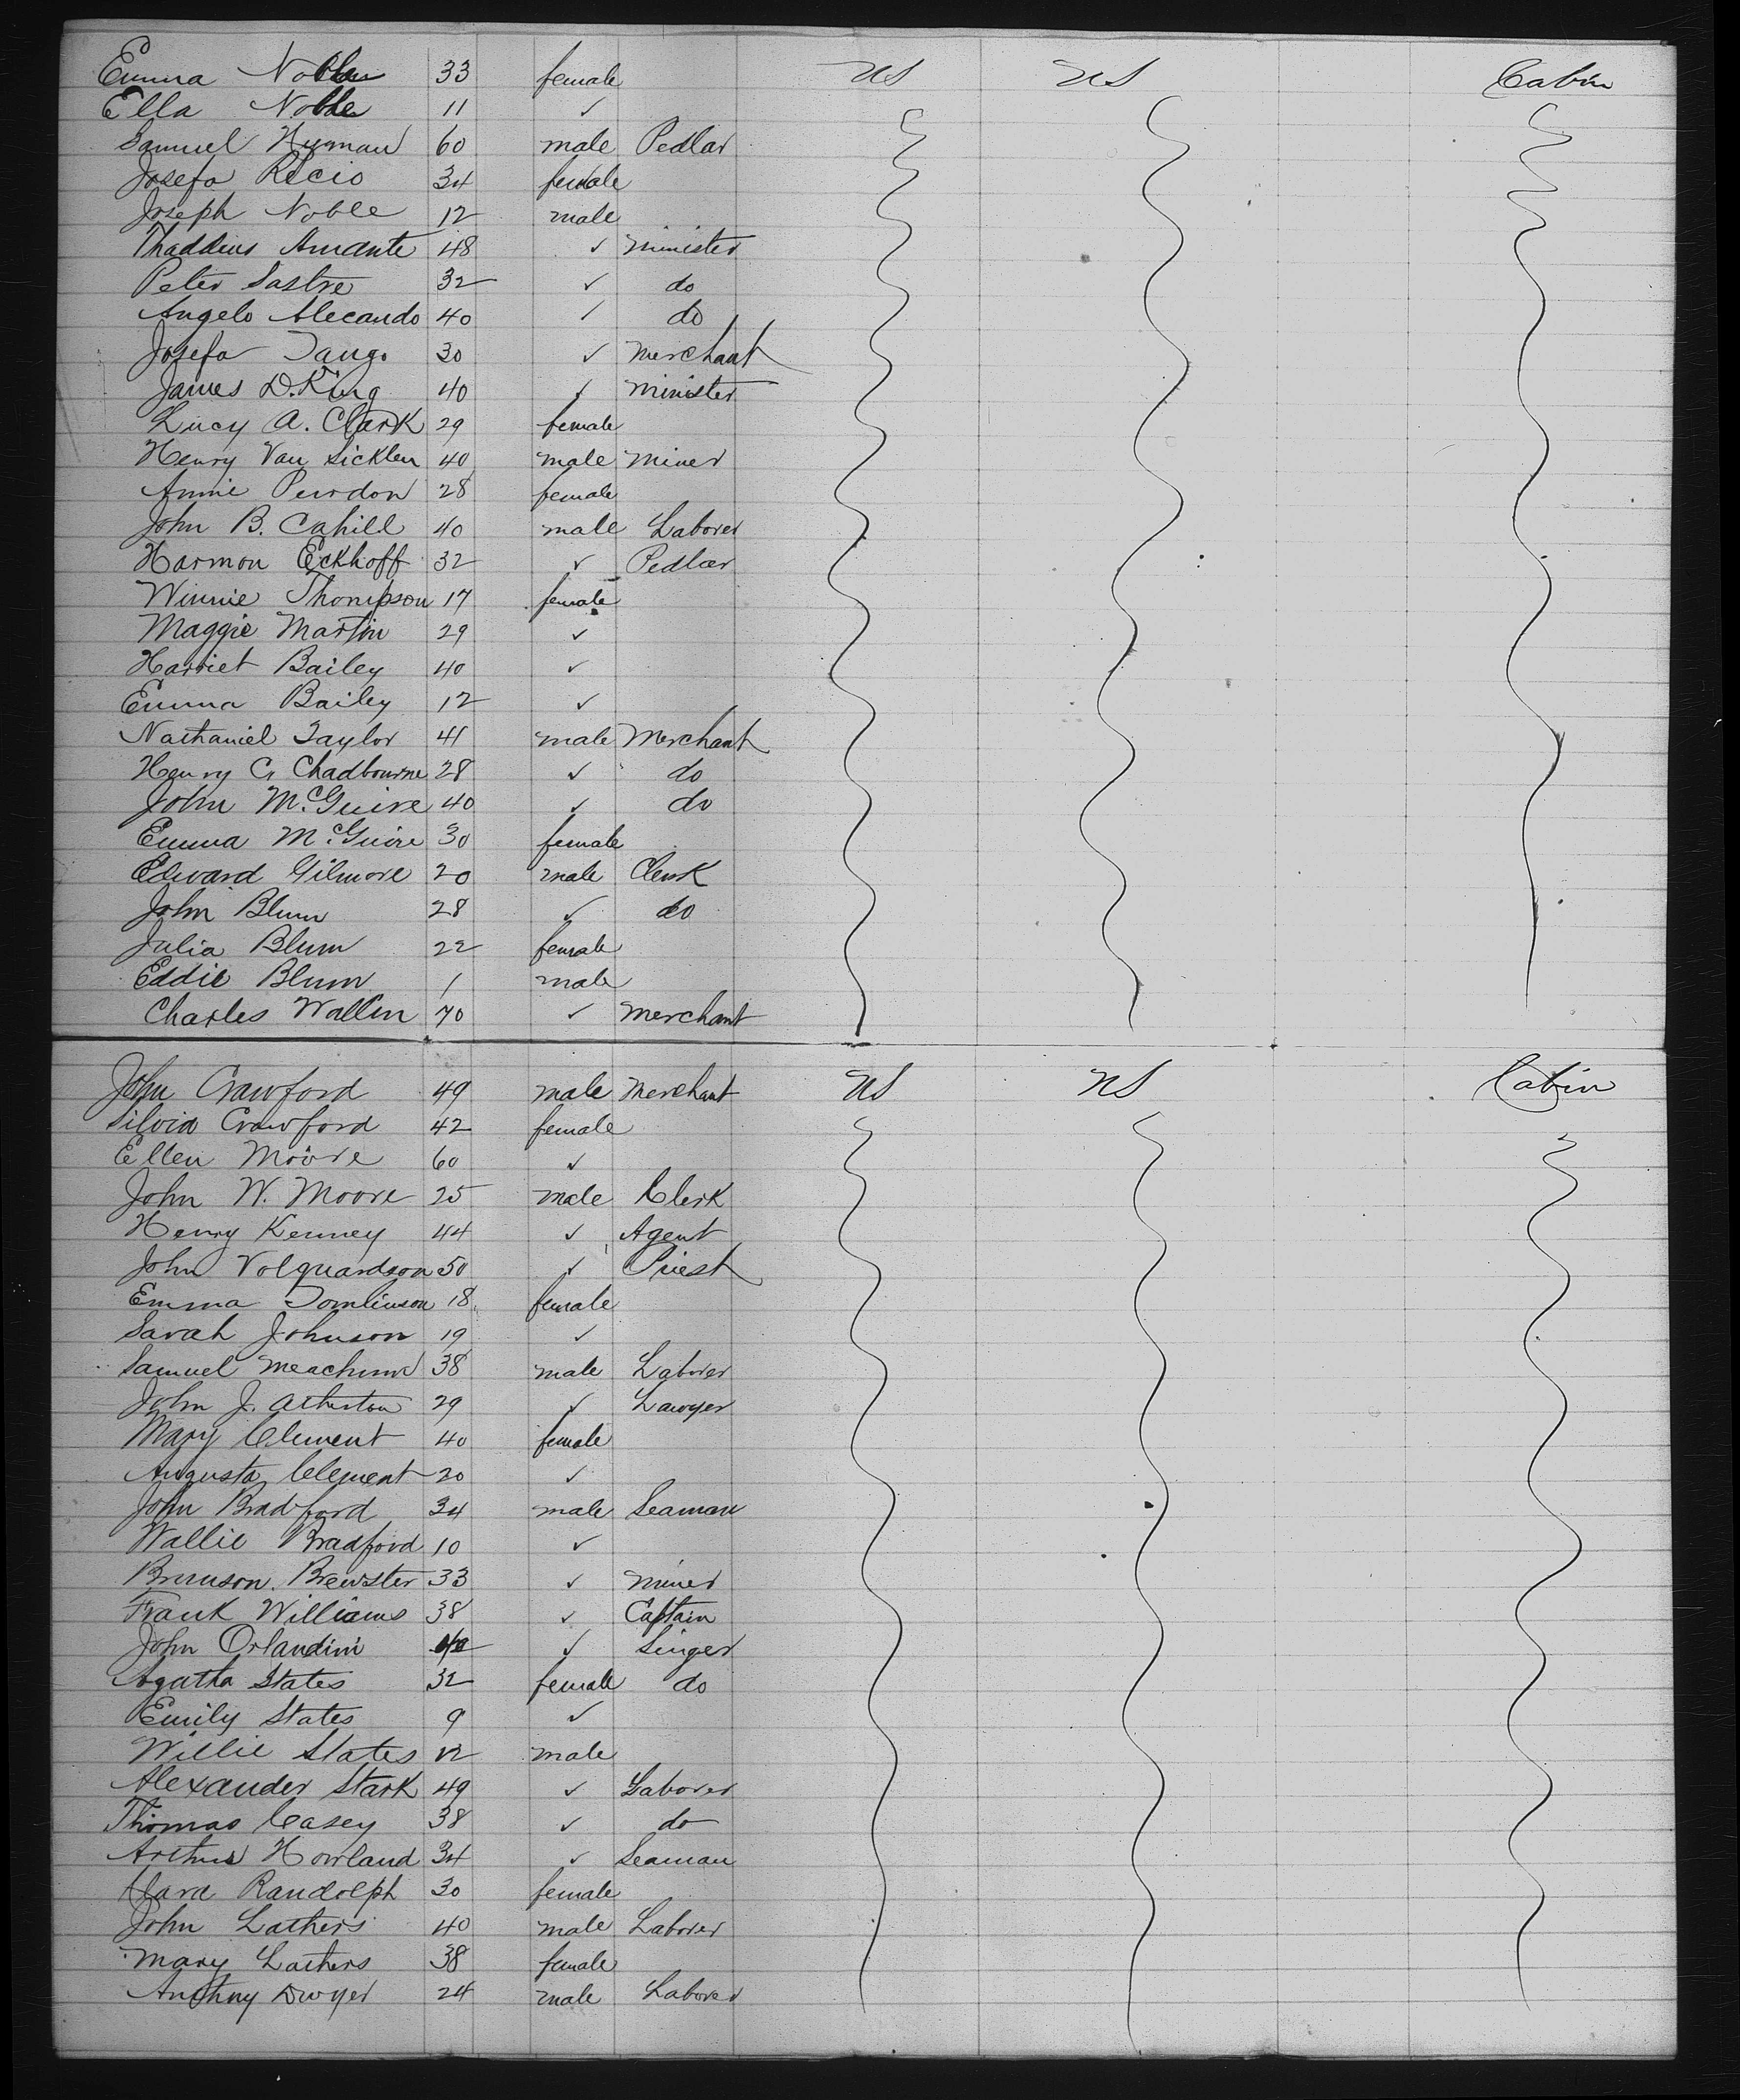 Emma Noble 33 female US US Cabin
Ella Noble 11 ✓
Samuel Hyman 60 male Pedlar
Josefa Recio 34 female
Joseph Noble 12 male
Thaddeus Amante 48 ✓ minister
Peter Sastre 32 ✓ do
Angelo Alecando 40 ✓ do
Josefa Tango 30 ✓ merchant
James D. King 40 ✓ minister
Lucy A. Clark 29 female
Henry Van Sicklen 40 male miner
Annie Purdon 28 female
John B. Cahill 40 male Laborer
Harmon Eckhoff 32 ✓ Pedlar
Winnie Thompson 17 female
Maggie Martin 29 ✓
Harriet Bailey 40 ✓
Emma Bailey 12 ✓
Nathaniel Taylor 41 male Merchant
Henry C. Chadbourne 28 ✓ do
John McGuire 40 ✓ do
Emma McGuire 30 female
Edward Gilmore 20 male Clerk
John Blum 28 ✓ do
Julia Blum 22 female
Eddie Blum 1 male
Charles Wallin 70 ✓ merchant
John Crawford 49 male Merchant US US Cabin
Silvia Crawford 42 female
Ellen Moore 60 ✓
John W. Moore 25 male Clerk
Henry Kenney 44 ✓ Agent
John Volquardson 50 ✓ Priest
Emma Tomlinson 18 female
Sarah Johnson 19 ✓
Samuel Meachum 38 male Laborer
John J. Atherton 29 ✓ Lawyer
Mary Clement 40 female
Augusta Clement 20 ✓
John Bradford 34 male Seaman
Wallie Bradford 10 ✓
Brunson Brewster 33 ✓ miner
Frank Williams 38 ✓ Captain
John Orlandini 40 ✓ Singer
Agatha States 32 female do
Emily States 9 ✓
Willie States 12 male
Alexander Stark 49 ✓ Laborer
Thomas Casey 38 ✓ do
Arthur Howland 34 ✓ Seaman
Clara Randolph 30 female
John Lathers 40 male Laborer
Mary Lathers 38 female
Anthny Dwyer 24 male Laborer